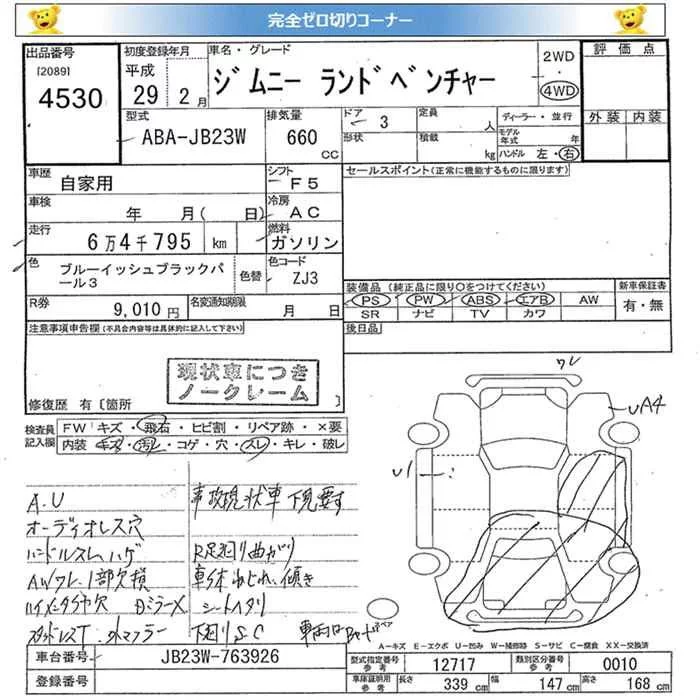 完全ゼロ切りコーナー
出品番号 初度登録年月 車名・グレード 評価点
[2089]
4530
平成
29 2月
ジムニー ランドベンチャー
2WD
4WD
型式 排気量 ドア 定員 ディーラー・並行 外装 内装
ABA-JB23W 660 CC
3 人
形状 積載 kg
モデル年式 年
ハンドル 左・右
車歴 シフト セールスポイント(正常に機能するものに限ります)
自家用 F5
車検 冷房
年 月( 日) AC
走行 燃料
6万4千795 km ガソリン
色 色替 色コード
ブルーイッシュブラックパール3 ZJ3
装備品(純正品に限り○をつけてください) 新車保証書
PS PW ABS エアB AW 有・無
SR ナビ TV カワ
R券 名変通知期限
9,010円 月 日
注意事項申告欄(不具合内容等は具体的に記入して下さい) 後日品
現状車につき
ノークレーム
修復歴 有〔箇所
検査員記入欄
FW キズ・飛石・ヒビ割・リペア跡・×要
内装 キズ・汚れ・コゲ・穴・スレ・キレ・破レ
ワレ
UA4
U1
A.U 事故現状車 下見要す
オーディオレス穴
ハンドルスレ、ハゲ R足廻り曲がり
AWワレ、1部欠損 車体ねじれ、傾き
DミラーX シートヘタリ
スタッドレスT 外マフラー 下廻りS.C
A-キズ E-エクボ U-凹み W-補修跡 S-サビ C-腐食 XX-交換済
車台番号 JB23W-763926
登録番号
型式指定番号 参考 12717 類別区分番号 参考 0010
車庫証明用 参考 長さ 339 cm 幅 147 cm 高さ 168 cm